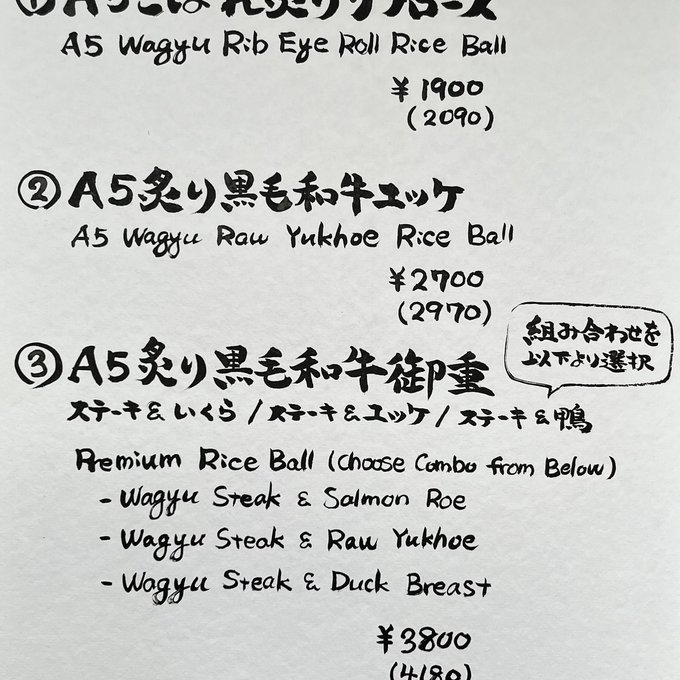 ①A5こぼれ炙りリブロース
A5 Wagyu Rib Eye Roll Rice Ball
¥1900
(2090)
②A5炙り黒毛和牛ユッケ
A5 Wagyu Raw Yukhoe Rice Ball
¥2700
(2970)
③A5炙り黒毛和牛御重
組み合わせを
以下より選択
ステーキ&いくら/ステーキ&ユッケ/ステーキ&鴨
Premium Rice Ball (Choose Combo from Below)
- Wagyu Steak & Salmon Roe
- Wagyu Steak & Raw Yukhoe
- Wagyu Steak & Duck Breast
¥3800
(4180)